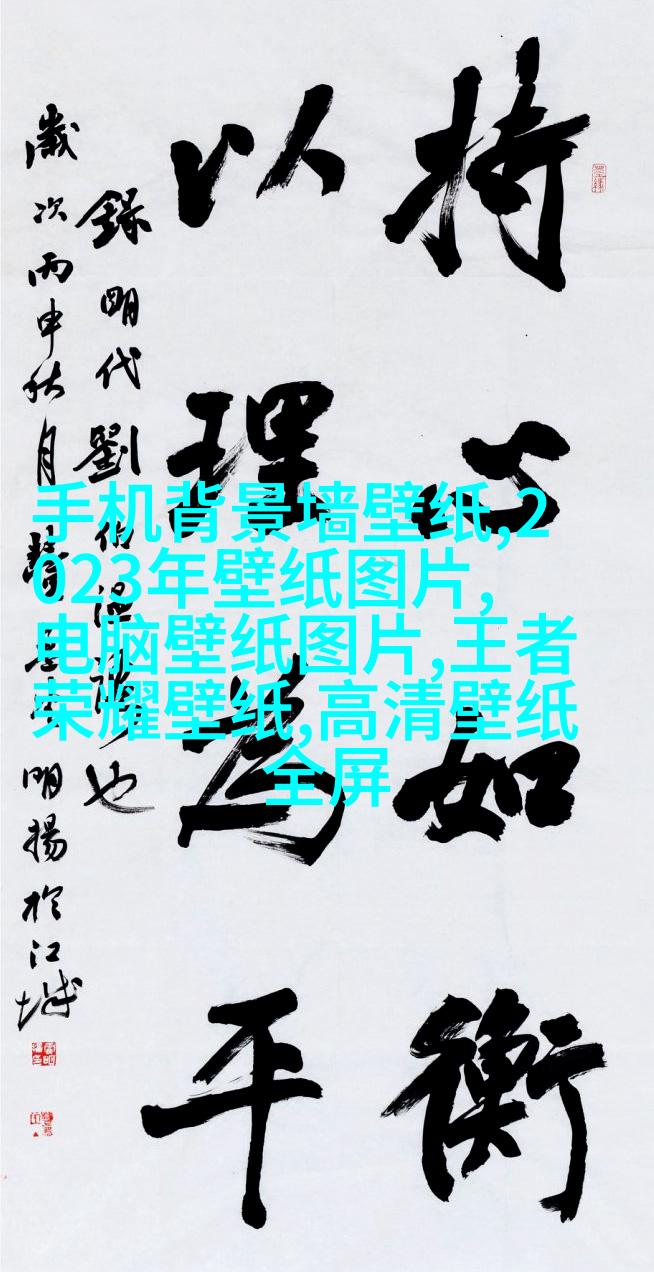 持心如衡
以理為平
錄明代劉伯温也
歲次丙申秋月明揚於江城
手机背景墙壁纸,2
023年壁纸图片,
电脑壁纸图片,王者
荣耀壁纸,高清壁纸
全屏